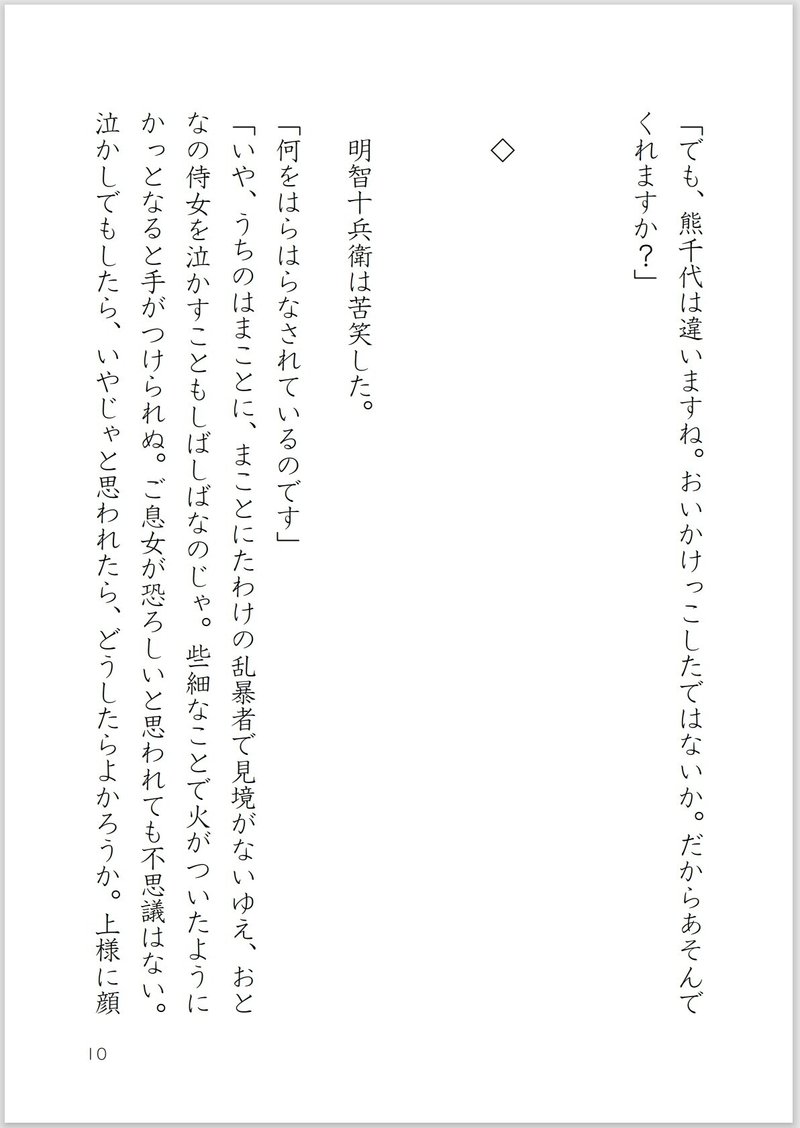 「でも、熊千代は違いますね。おいかけっこしたではないか。だからあそんで
くれますか？」
◇
明智十兵衛は苦笑した。
「何をはらはらなされているのです」
「いや、うちのはまことに、まことにたわけの乱暴者で見境がないゆえ、おと
なの侍女を泣かすこともしばしばなのじゃ。些細なことで火がついたように
かっとなると手がつけられぬ。ご息女が恐ろしいと思われても不思議はない。
泣かしでもしたら、いやじゃと思われたら、どうしたらよかろうか。上様に顔
10